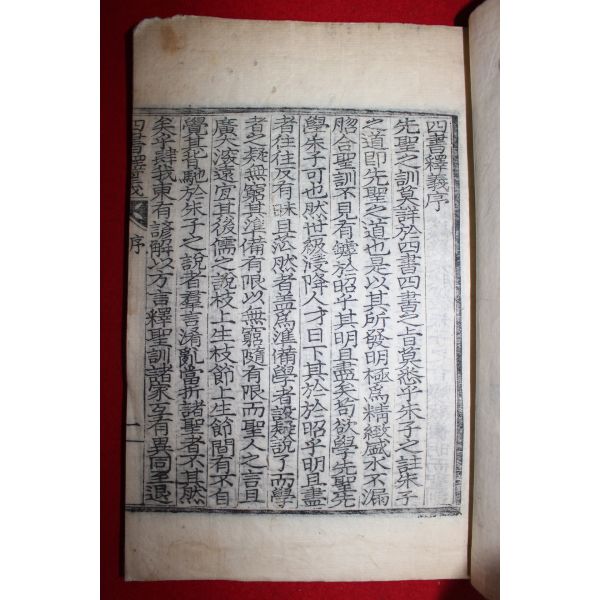 四書釋義序
先聖之訓莫詳於四書四書之旨莫悉乎朱子之註朱子
之道即先聖之道也是以其所發明極爲精緻盛水不漏
脗合聖訓不見有鏬於昭乎其明且盡矣苟欲學先聖先
學朱子可也然世級寖降人才日下其於於昭乎明且盡
者往往反有昧且茫然者盖爲準備學者設疑說了而學
者之疑無窮其準備有限以無窮隨有限而聖人之言且
廣大深遠宜其後儒之說枝上生枝節上生節間有不自
覺其背馳於朱子之說者羣言淆亂當折諸聖者不其然
矣乎肆我東有諺解以方言釋聖訓諸家互有異同至退
四書釋義 序 一